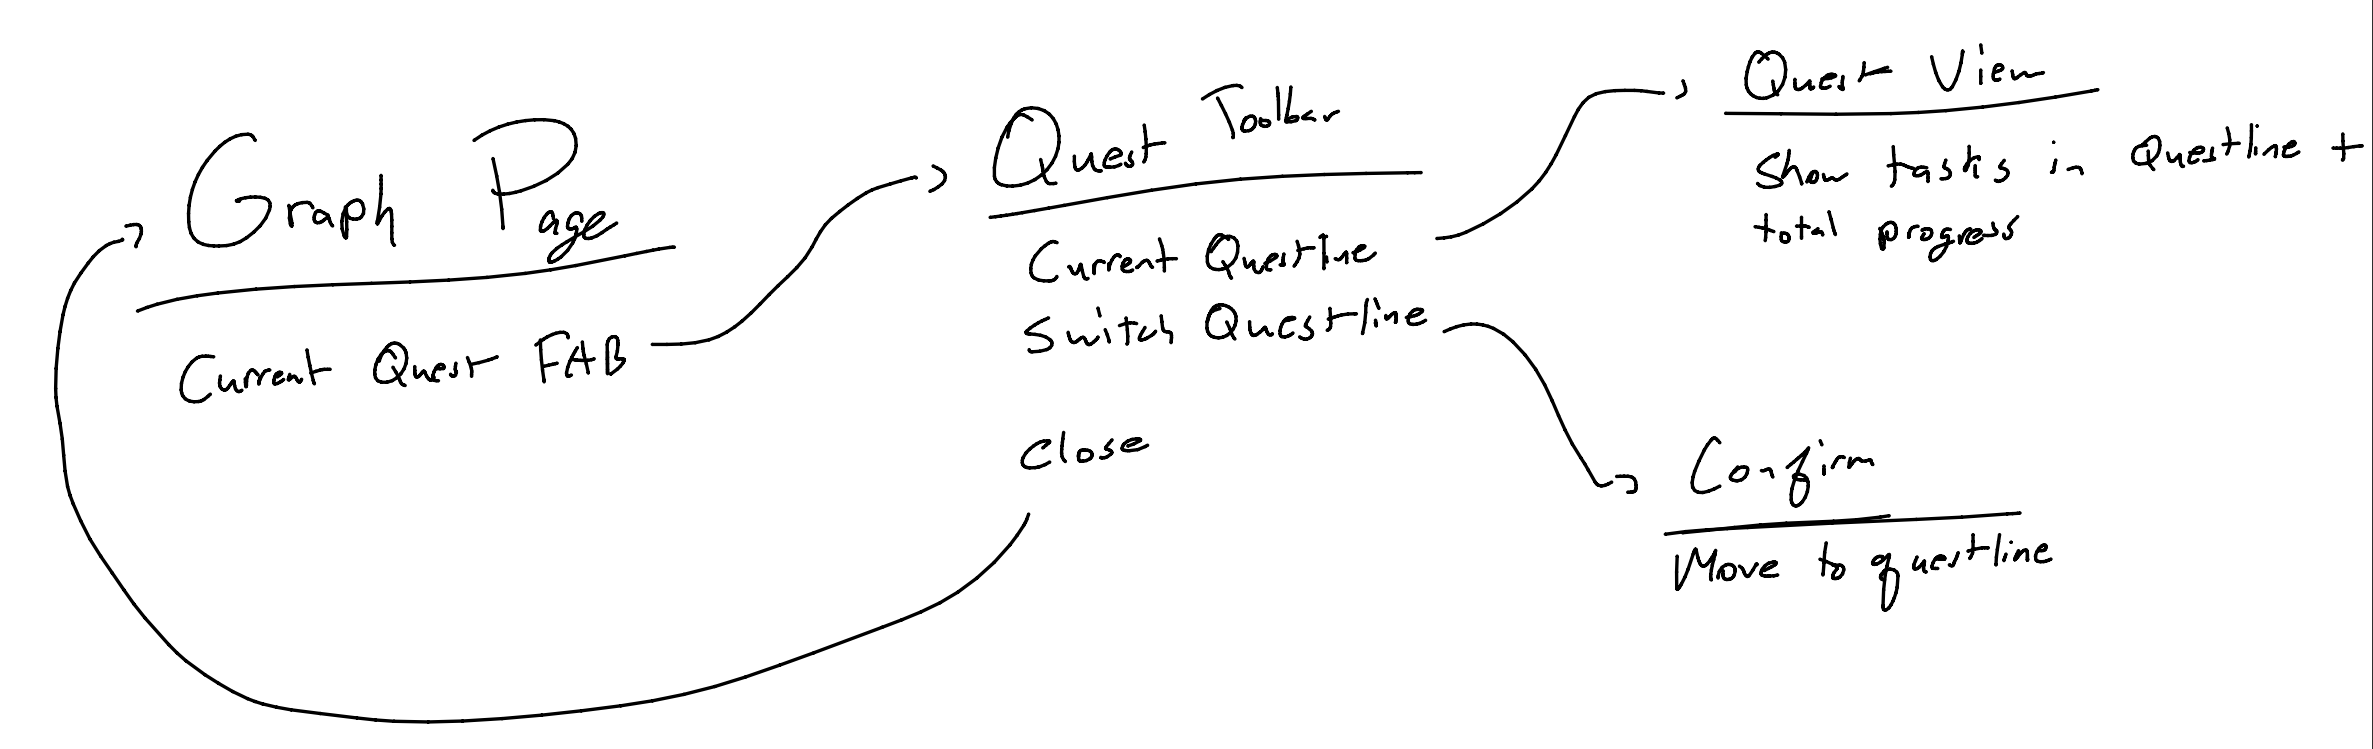 Graph Page
Current Quest FAB
Quest Toolbar
Current Questline
Switch Questline
Close
Quest View
Show tasks in Questline +
total progress
Confirm
Move to questline